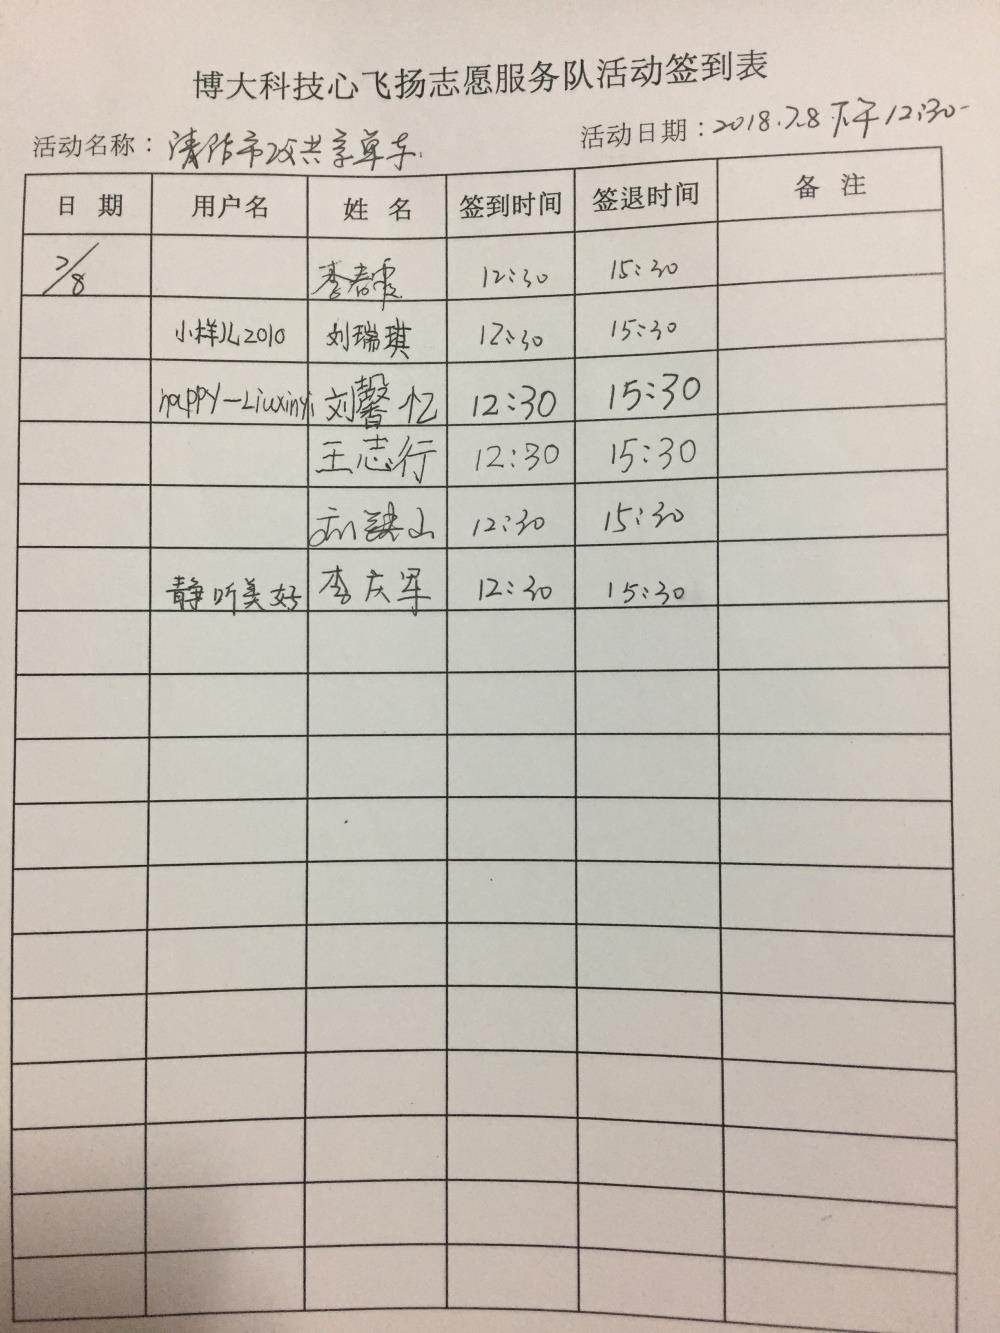 博大科技心飞扬志愿服务队活动签到表
活动名称：清洁市政共享单车
活动日期：2018.7.8 下午12:30-
日 期 用户名 姓 名 签到时间 签退时间 备 注
7/8 李春霞 12:30 15:30
小样儿2010 刘瑞琪 12:30 15:30
happy-Liuxinyi 刘馨忆 12:30 15:30
王志行 12:30 15:30
12:30 15:30
静听美好 李庆军 12:30 15:30